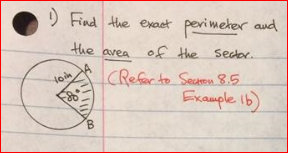 1) Find the exact perimeter and
the area of the sector.
(Refer to Section 8.5
Example 1b)
10in
A
80°
B